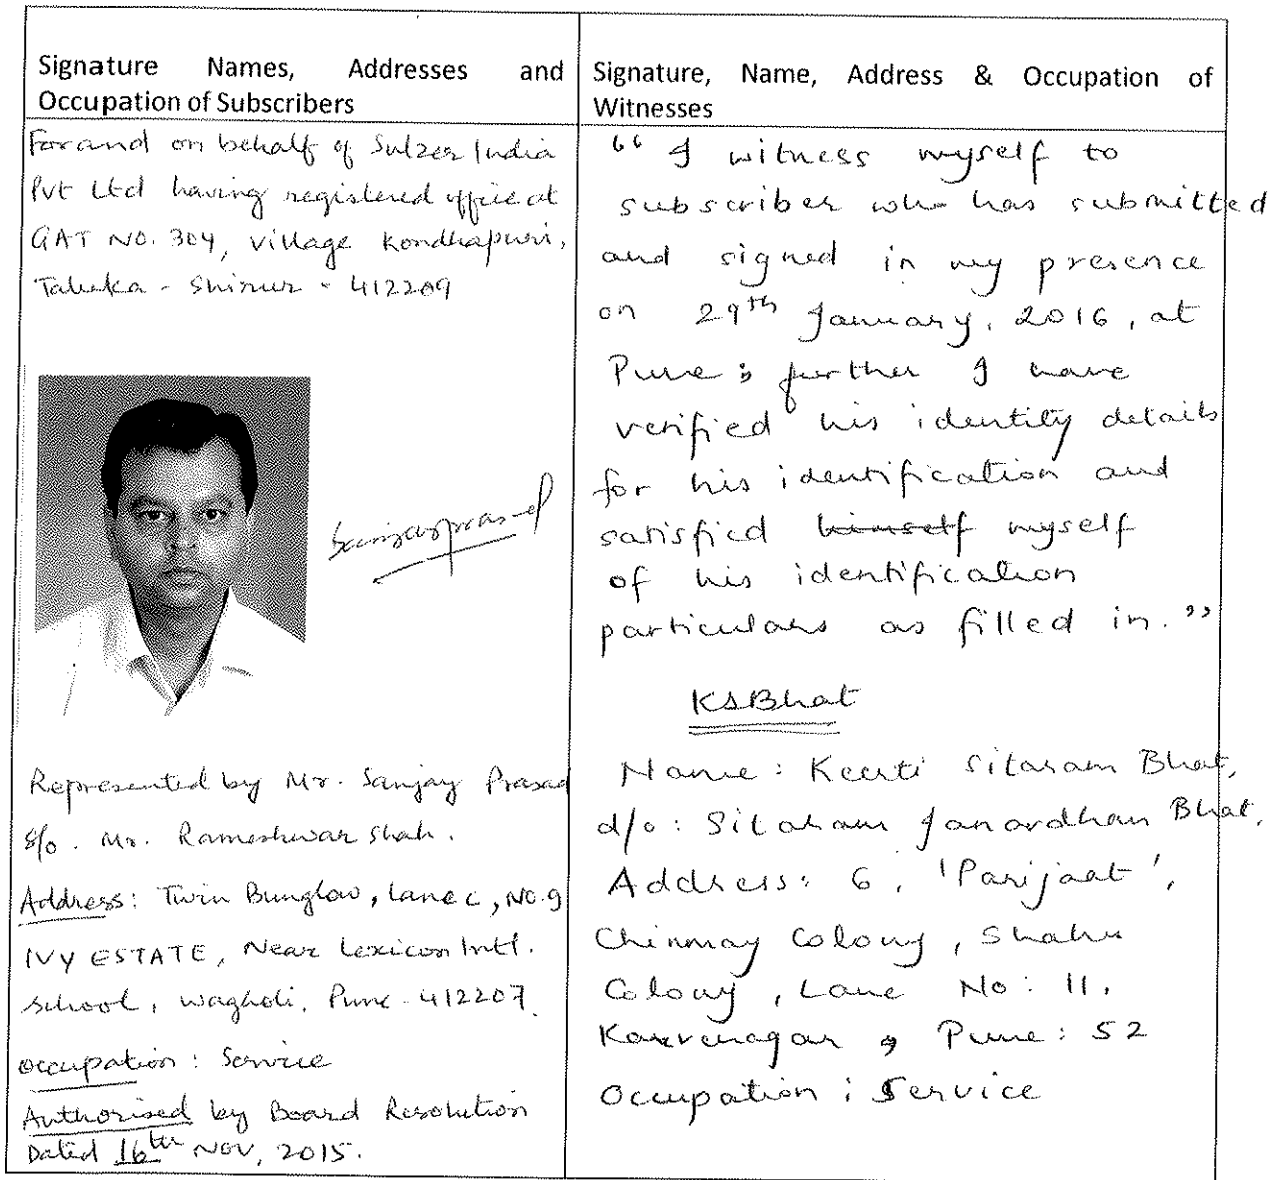 Signature Names, Addresses and
Occupation of Subscribers
For and on behalf of Sulzer India
Pvt Ltd having registered office at
GAT NO. 304, Village Kondhapuri,
Taluka - Shirur - 412209
Sanjayprasad
Represented by Mr. Sanjay Prasad
S/o. Mr. Rameshwar Shah.
Address: Twin Bunglow, Lane C, No. 9
IVY ESTATE, Near Lexicon Intl.
School, Wagholi, Pune - 412207.
Occupation: Service
Authorised by Board Resolution
Dated 16th Nov, 2015.
Signature, Name, Address & Occupation of
Witnesses
"I witness myself to
subscriber who has submitted
and signed in my presence
on 29th January, 2016, at
Pune; further I have
verified his identity details
for his identification and
satisfied himself myself
of his identification
particulars as filled in."
KSBhat
Name: Keerti Sitaram Bhat,
d/o: Sitaram Janardhan Bhat,
Address: 6, 'Parijaat',
Chinmay Colony, Shahu
Colony, Lane No: 11,
Karvenagar, Pune: 52
Occupation: Service